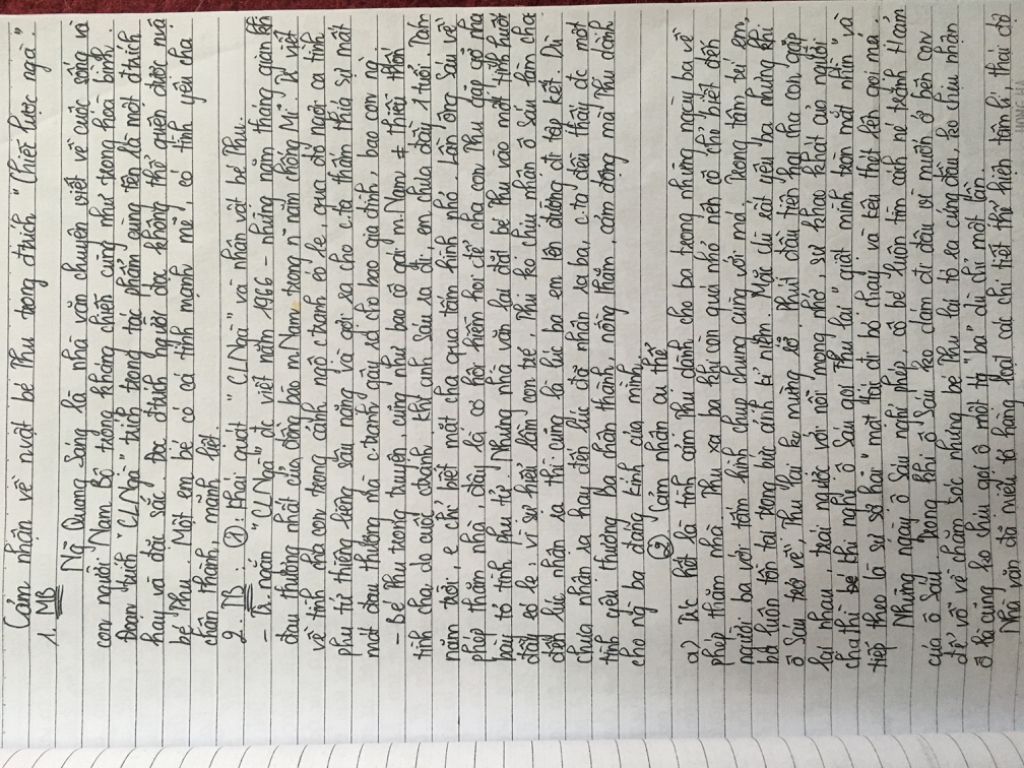 Cảm nhận về nvật bé Thu trong đtrích "Chiếc lược ngà".
1. MB
Ng Quang Sáng là nhà văn chuyên viết về cuộc sống và
con người Nam Bộ trong kháng chiến cũng như trong hòa bình.
Đoạn trích "CLNgà" trích trong tác phẩm cùng tên là một đtrích
hay và đặc sắc. Đọc đtrích người đọc không thể quên được nvật
bé Thu. Một em bé có cá tính mạnh mẽ, có tình yêu cha
chân thành, mãnh liệt
2. TB: ①: khái quát "CLNgà" và nhân vật bé Thu.
- Tr ngắn "CLNgà" đc viết năm 1966 - những năm tháng gian khổ
đau thương nhất của đồng bào m.Nam trong n năm chống Mĩ. Tr viết
về tình cha con trong cảnh ngộ c tranh éo le, qua đó ngợi ca tình
phụ tử thiêng liêng sâu nặng và gợi ra cho c.ta thấm thía sự mất
mát đau thương mà c.tranh gây ra cho bao gia đình, bao con ng
- Bé Thu trong truyện, cũng như bao cô gái m.Nam # thiếu thốn
tình cha do cuộc ctranh. Khi anh Sáu ra đi, em chưa đầy 1 tuổi. Tám
năm trời, e chỉ biết mặt cha qua tấm hình nhỏ. Lần ông Sáu về
phép thăm nhà, đây là cơ hội hiếm hoi để cha con Thu gặp gỡ na
bày tỏ tình phụ tử. Nhưng nhà văn lại đặt bé Thu vào một tình huống
đầy éo le, vì sự hiểu lầm con trẻ, Thu ko chịu nhận ô Sáu làm cha
đến lúc nhận ra thì cũng là lúc ba em lên đường đi tập kết. Dù
chưa nhận ra hay đến lúc đã nhận ra ba, c.ta đều thấy đc một
tình yêu thương ba chân thành, nồng thắm, cảm động mà Thu dành
cho ng ba đáng kính của mình.
② Cảm nhận cụ thể
a) Trc hết là tình cảm Thu dành cho ba trong những ngày ba về
phép thăm nhà. Thu xa ba khi còn quá nhỏ nên cô chỉ biết đến
người ba với tấm hình chụp chung cùng với má. Trong tâm trí em,
ba luôn tồn tại trong bức ảnh kỉ niệm. Mặc dù rất yêu ba nhưng khi
ô Sáu trở về, Thu lại ko mừng rỡ. Phút đầu tiên hai cha con gặp
lại nhau, trái ngược với nỗi mong nhớ, sự khao khát của người
cha thì khi nghe ô Sáu gọi Thu lại "giật mình tròn mắt nhìn" và
tiếp theo là sự sợ hãi "mặt tái đi bỏ chạy và kêu thét lên gọi má.
Những ngày ô Sáu nghỉ phép, cô bé luôn tìm cách né tránh
của ô Sáu. Trong khi ô Sáu ko dám đi đâu vì muốn ở bên con
để vỗ về chăm sóc nhưng bé Thu lại tỏ ra cứng đầu, ko chịu nhận
ô là cũng ko chịu gọi ô một tg "ba" dù chỉ một lần
Nhà văn đã miêu tả hàng loạt các chi tiết thể hiện tâm lí, thái độ